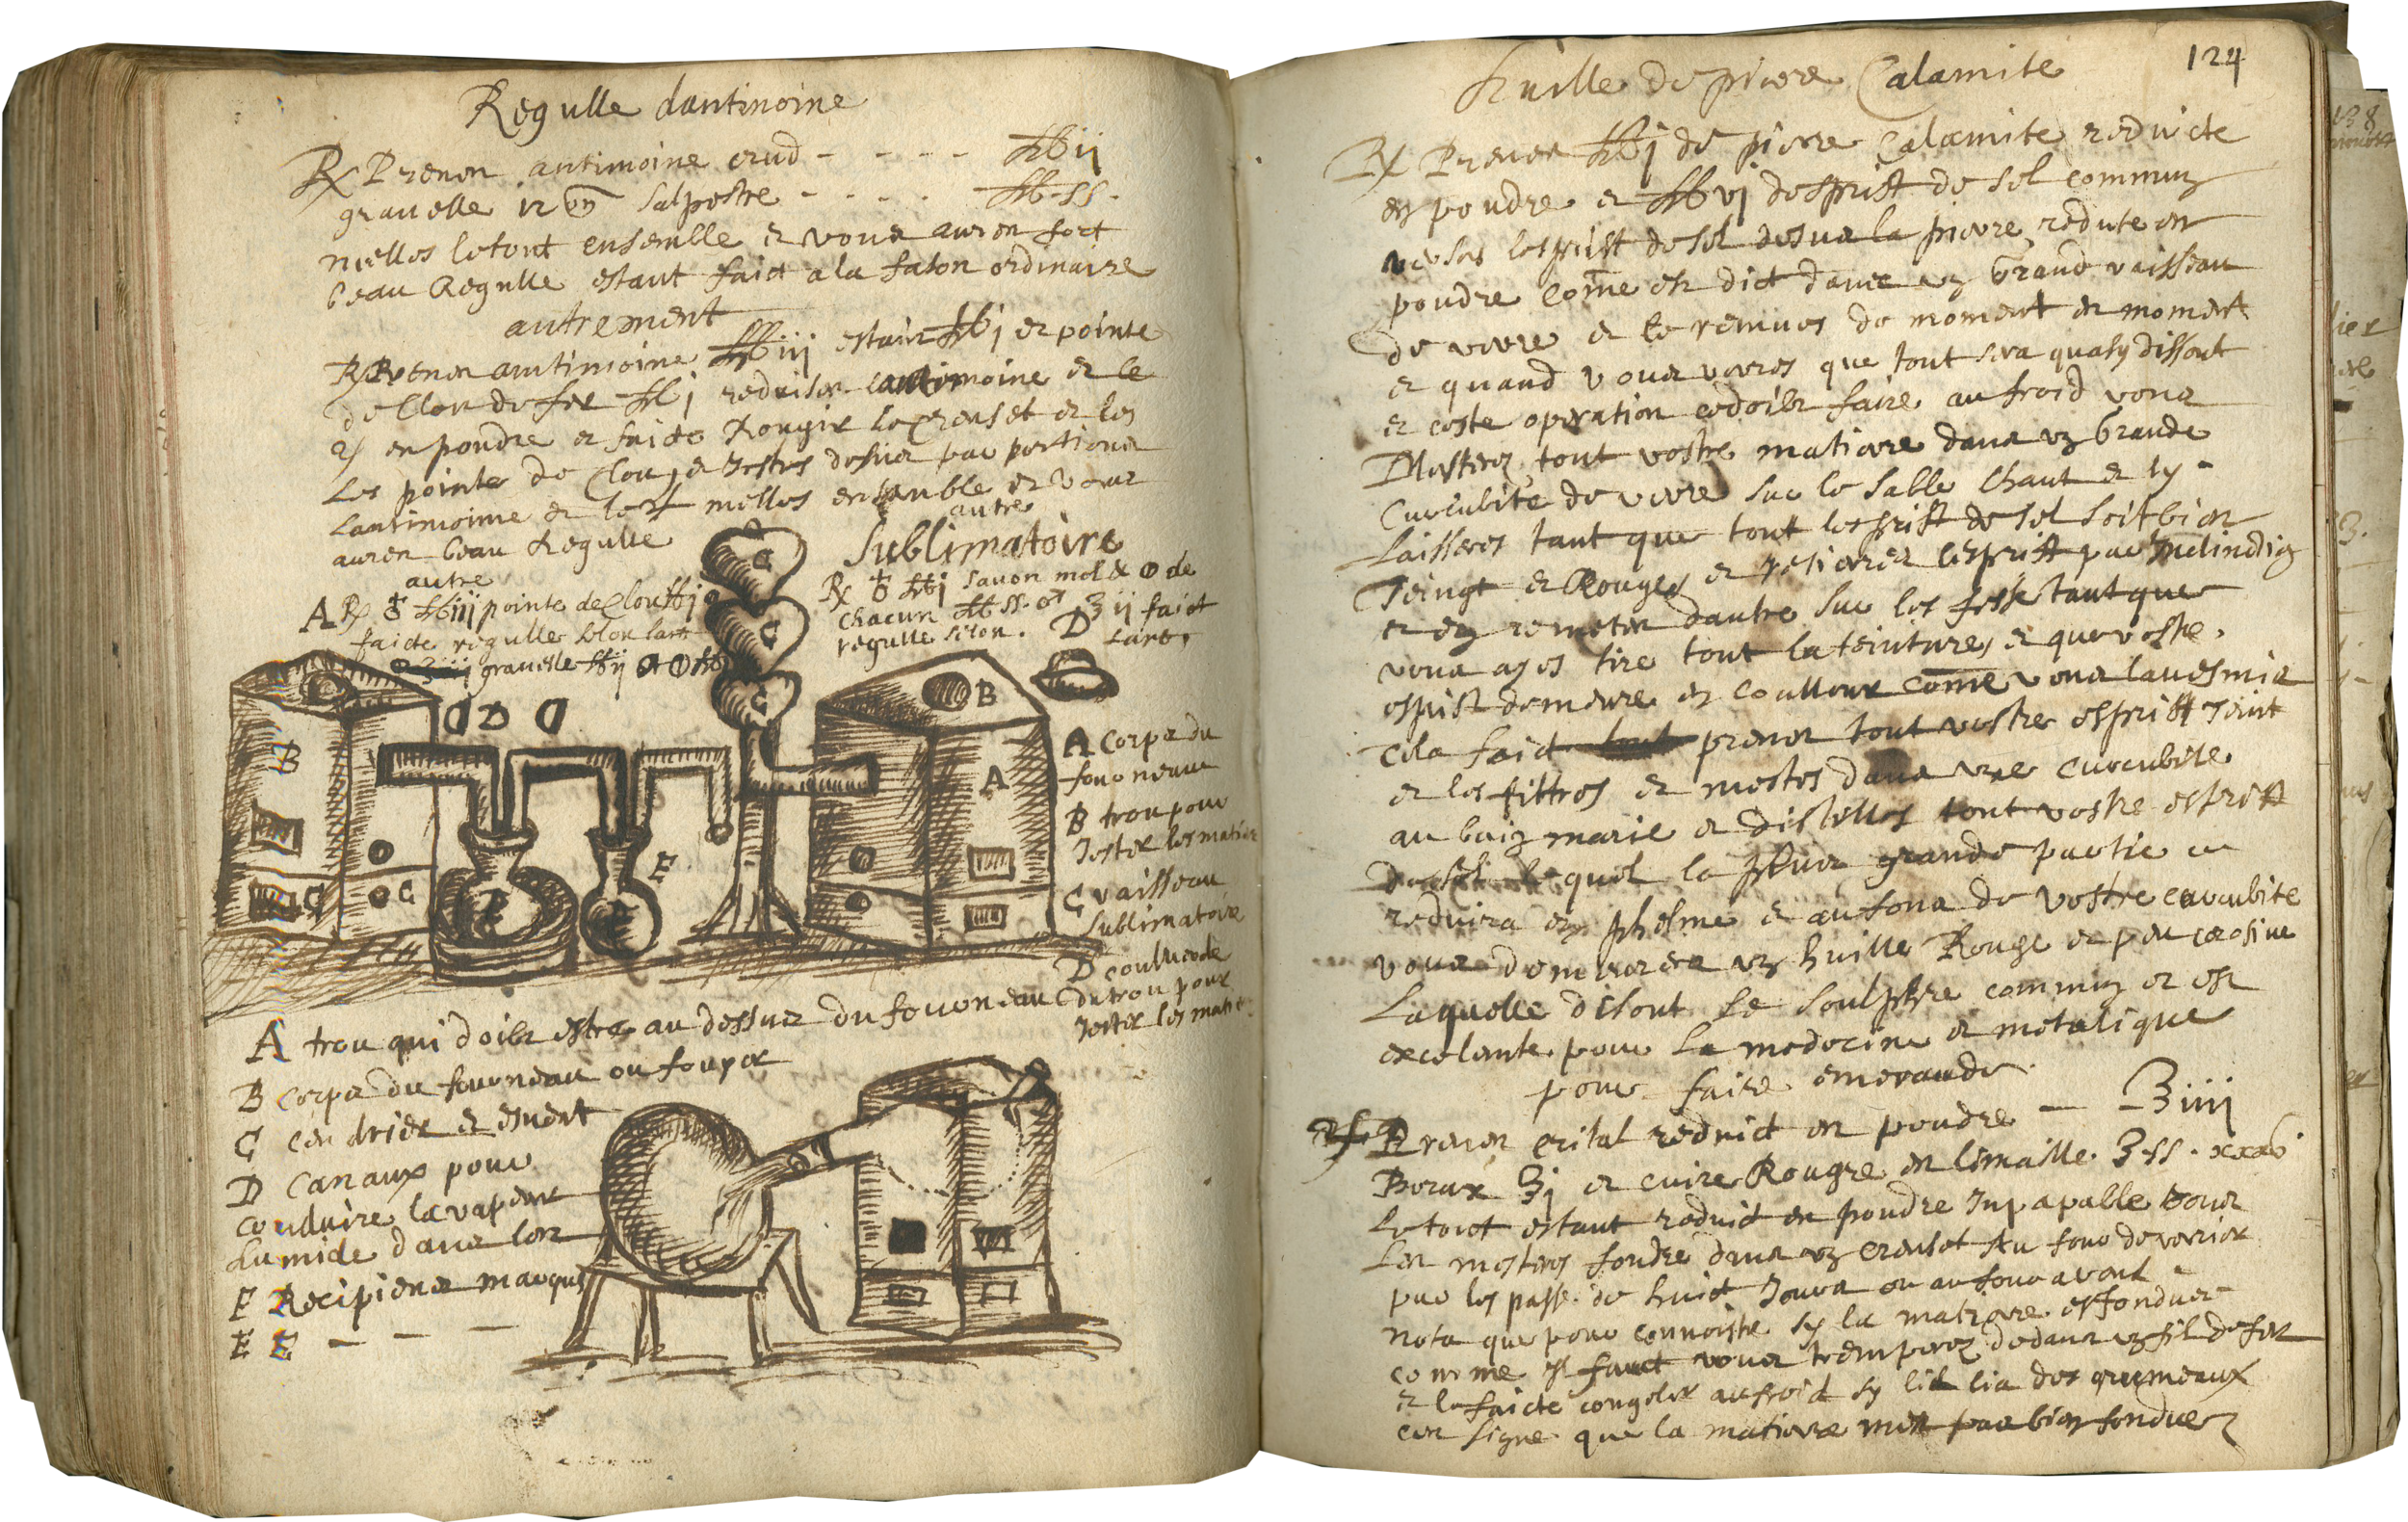 Regulle dantimoine
℞ Prenon antimoine crud - - - - ℔ ij
gravelle salpestre - - - - ℔ ss.
mellos letout ensemble et vous auron fort
beau Regulle estant faict a la fason ordinaire
autrement
℞ Prenon antimoine ℔ iij estain ℔ j et pointe
de Clou de fer ℔ j reduison lantimoine et le
en poudre et faicte Rougir le Creuset et les
Les pointe de Clou, et Jestes desus par portions
Lantimoine et le melles ensemble et vous
auren beau Regulle
autre
A ℞ ♁ ℔ iij pointe de Clou ℔ j
faicte regulle selon lart
gravelle ℔ ij
autre
Sublimatoire
℞ ♁ ℔ j savon mol &
de
chacun ℔ ss.
ʒ ij faict
regulle selon. D
Lart.
C
C
C
B
D D D
B
A
E
C
C
A Corps du
fourneau
B trou pour
Jester les matiere
C vaisseau
Sublimatoire
D couvercle
du trou pour
Jester les mat
A trou qui doibt estre au dessus du fourneau
B Corps du fourneau ou fouyer
C Cendrier et esvent
D Canaux pour
conduire la vapeur
humide dans les
E Recipiens marques
E E - - -
124
huille de pierre Calamite
℞ Prenen ℔ j de pierre Calamite reduicte
en poudre et ℔ vj desprist de sel commun
verses lesprist de sel desus la pierre redute en
poudre come est dict dans un Grand vaisseau
de verre et le remues de moment en moment
et quand vous verres que tout sera quasy dissout
et ceste operation ce doibt faire au froid vous
Mesteres tout vostre matiere dans un Grande
Cucurbite de verre sur le sable chaut et ly
Laisseres tant que tout lesprist de sel soit bien
Teingt et Rouge, et retirer lesprist par Inclination
et en remeter dautre sur les tant que
vous ayes tire tout la teinture, et que vostre
esprist demeure en coulleur come vous lavesmis
Cela faict prenen tout vostre esprist Teint
et les filtres et mestes dans une cucurbite
au bain marie et distilles tout vostre esprist
de sel lequel la plus grande partie ce
reduira en phelme et au fons de vostre cucurbite
vous demeurera un huille Rouge et peu corosive
Laquelle disout le soulphre commun et est
excelente pour la medecine et metalique
pour faire emeraude
Prenen cristal reduict en poudre — ʒ iiij
Borax ʒ j et cuivre Rougre en limaille ʒ ss.
Le tout estant reduict en poudre Inpapalle vous
Les mesteres fondre dans un creuset au four de verrier
par les passe de huict Jours ou au four a vent
nota que pour connoistre sy la matiere est fondue
comme Il faut vous tremperez dedans un fil de fer
et le faicte congeler au froid sy lil lia des grumeaux
cest signe que la matiere nest pas bien fondue